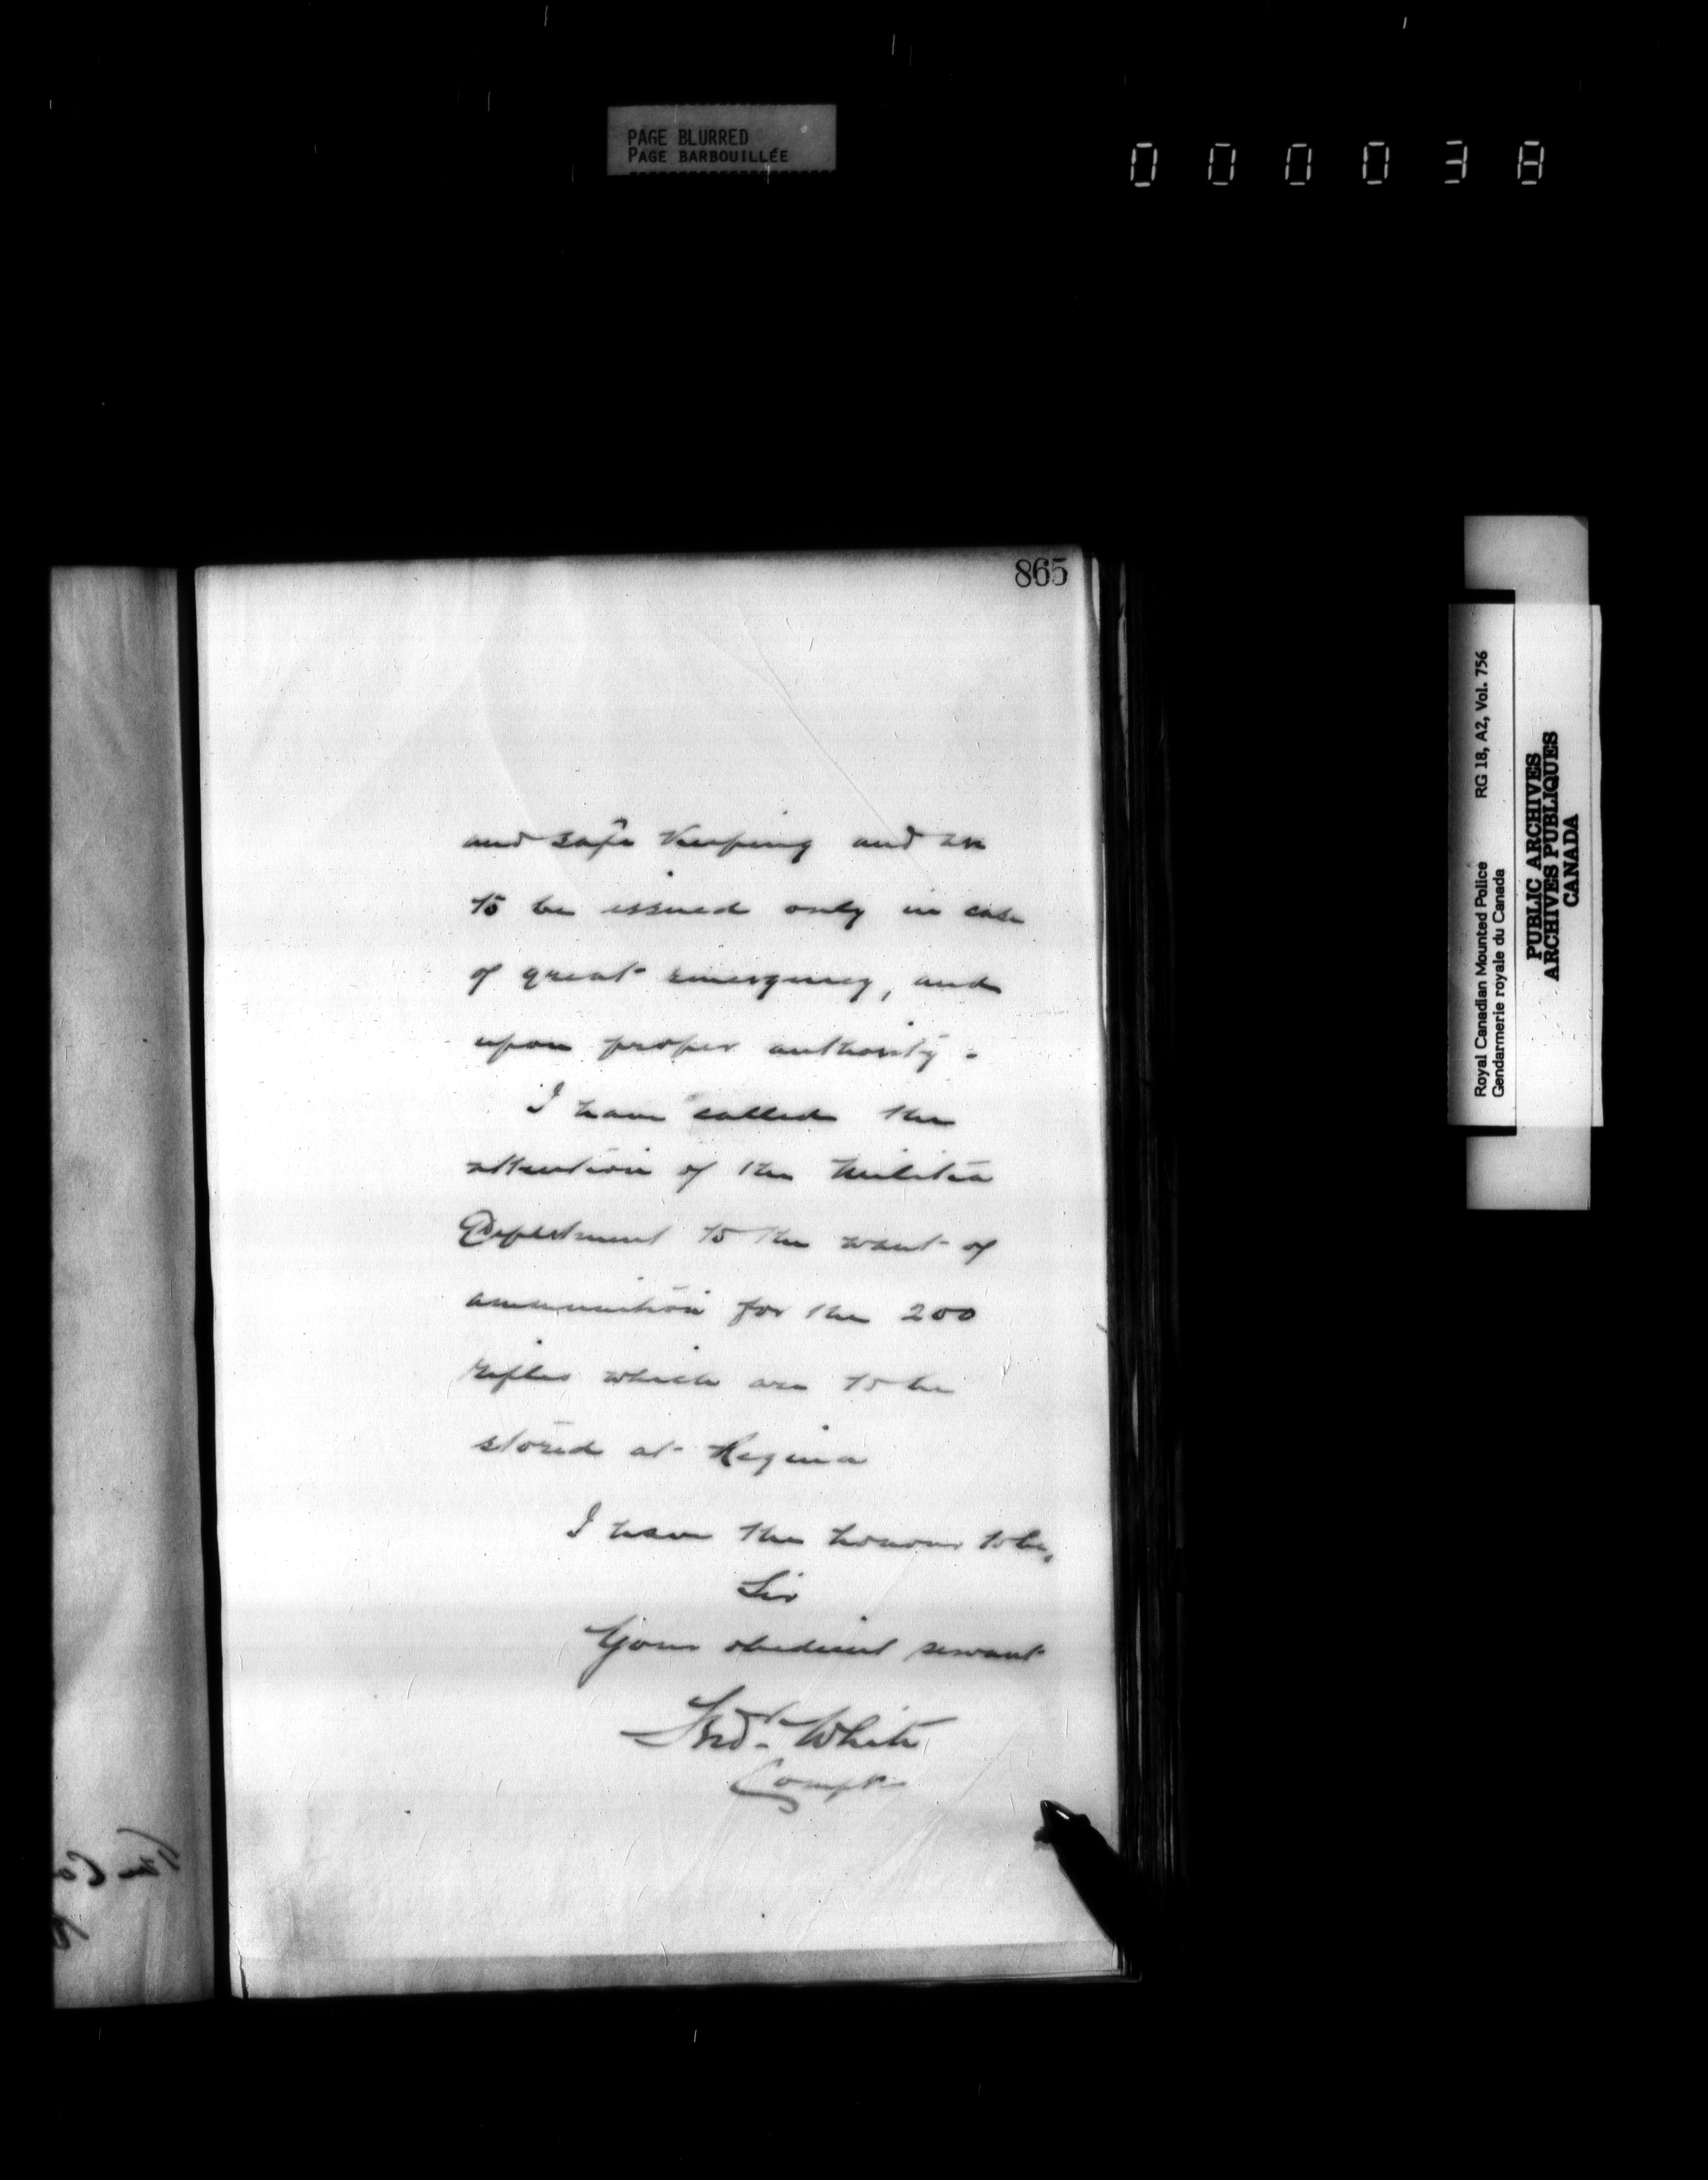 PAGE BLURRED
PAGE BARBOUILLÉE
000038
865
and safe keeping and are
to be issued only in case
of great emergency, and
upon proper authority.
I have called the
attention of the Militia
Department to the want of
ammunition for the 200
rifles which are to be
stored at Regina
I have the honour to be,
Sir
Your obedient servant
Fred. White
Compt.
Royal Canadian Mounted Police RG 18, A2, Vol. 756
Gendarmerie royale du Canada
PUBLIC ARCHIVES
ARCHIVES PUBLIQUES
CANADA